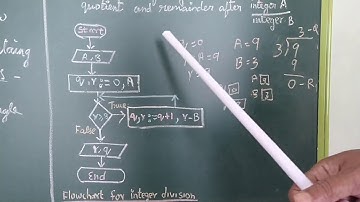 quotient and remainder after integer A
integer B
Start
A, B
q, r := 0, A
r≥B
True
q, r := q+1, r-B
False
r, q
End
Flowchart for integer division
q=0
A=9
B=3
A 9
B 3
3-Q
3 9
9
0-R